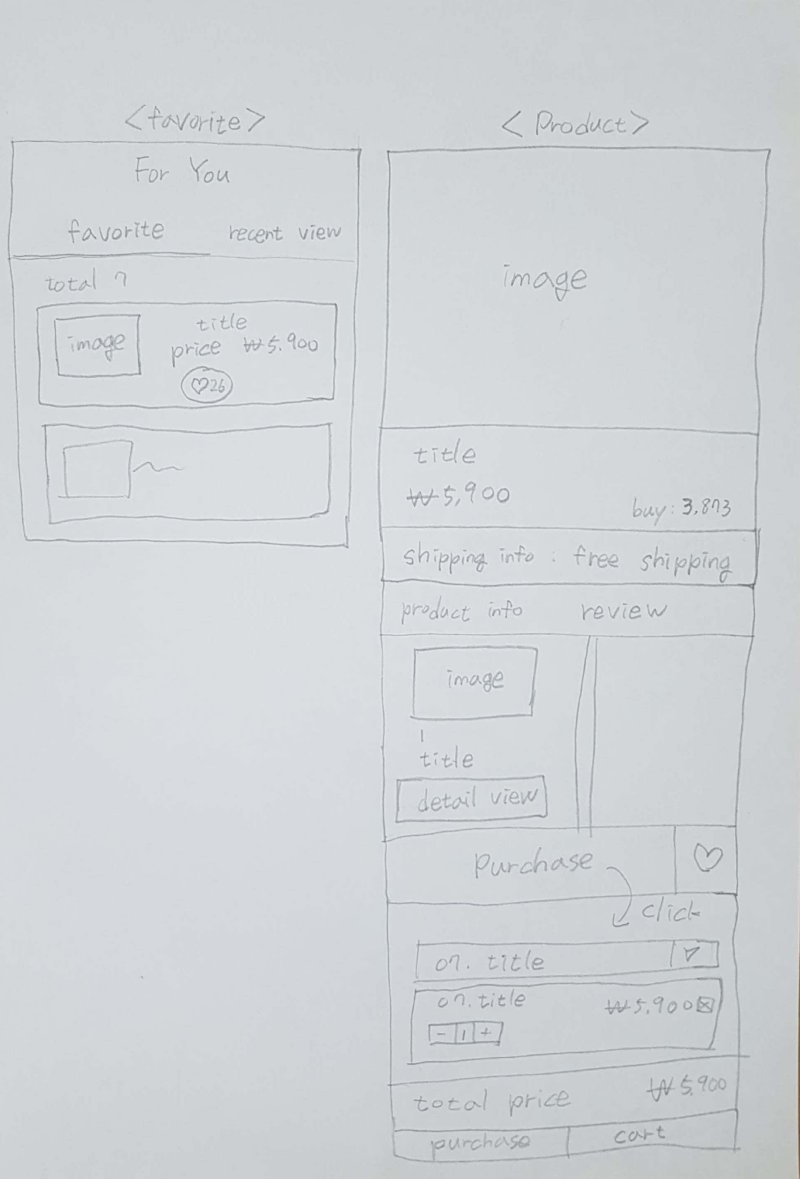 <favorite>
For You
favorite recent view
total 7
image
title
price ₩5.900
♡26
<Product>
image
title
₩5,900
buy: 3,873
shipping info : free shipping
product info review
image
title
detail view
Purchase
click
07. title
07. title ₩5.900
- 1 +
total price ₩5,900
purchase cart